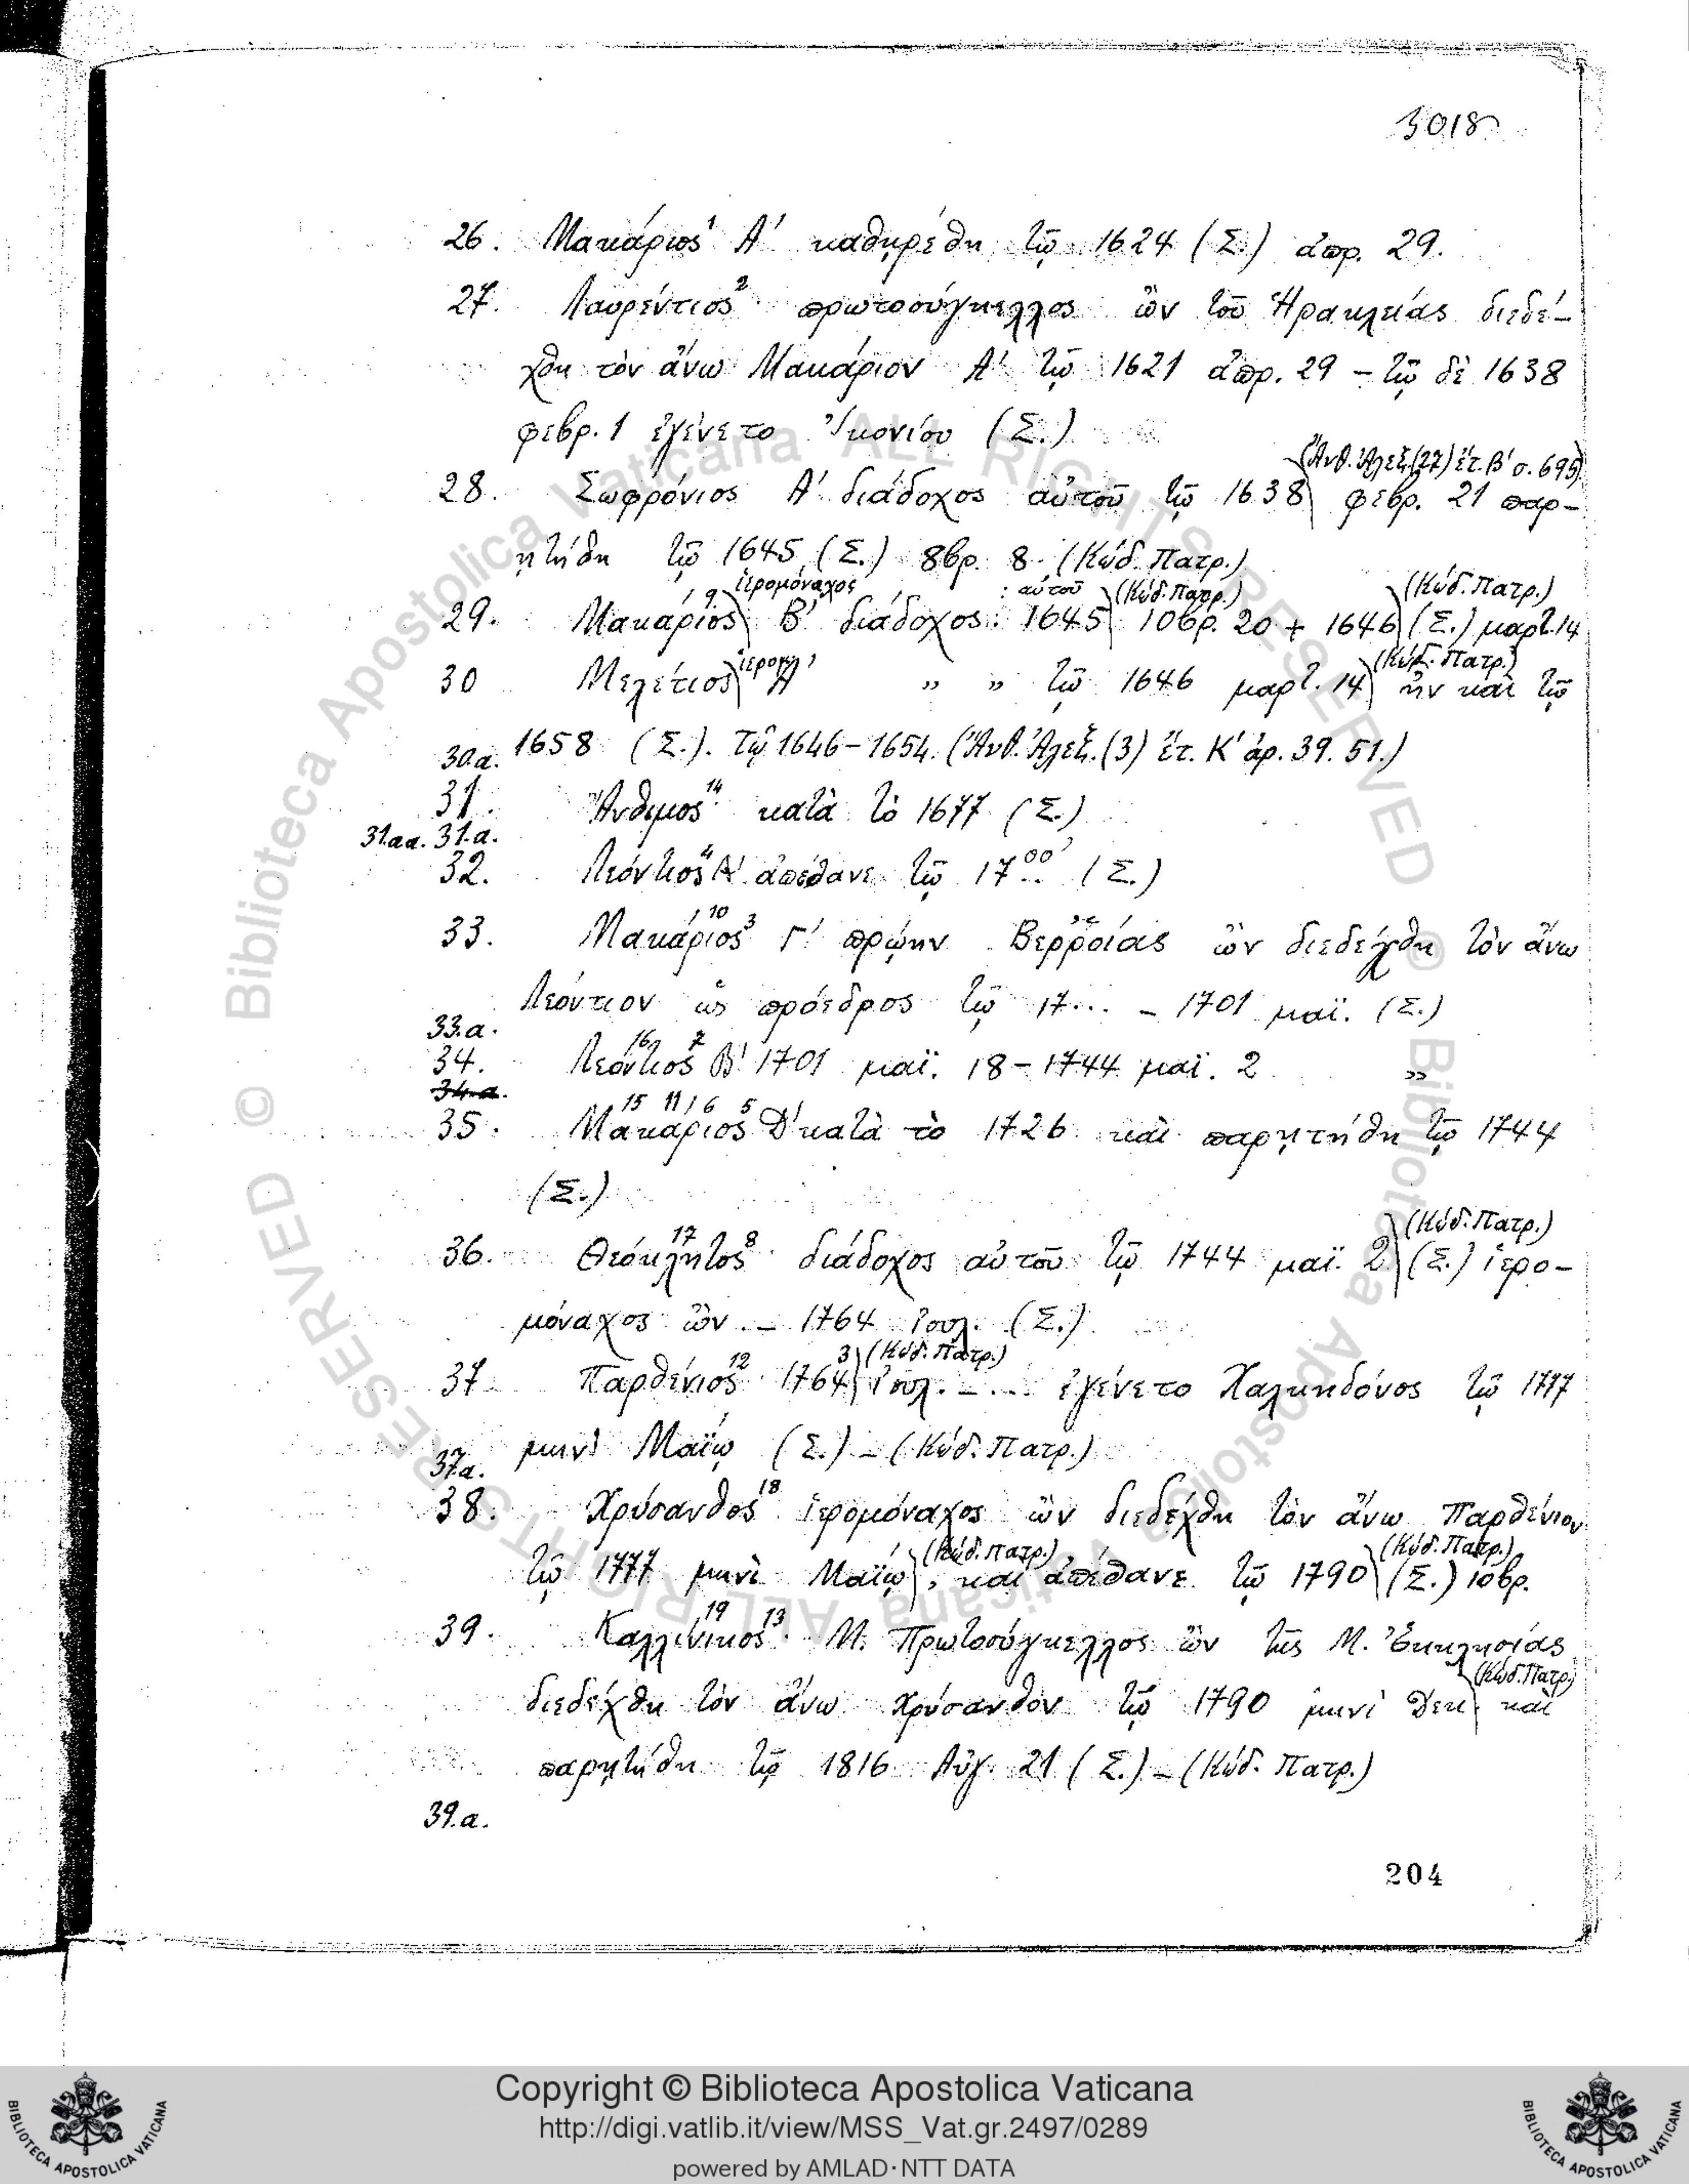 3018
26. Μακάριος¹ Α' καθῃρέθη τῷ 1624 (Σ.) ἀπρ. 29.
27. Λαυρέντιος² πρωτοσύγκελλος ὢν τοῦ Ἡρακλείας διεδέ-
χθη τὸν ἄνω Μακάριον Α' τῷ 1621 ἀπρ. 29 – τῷ δὲ 1638
φεβρ. 1 ἐγένετο Ἰκονίου (Σ.)
(Ἀνθ. Ἀλεξ. (27) ἔτ. Β' σ. 695)
28. Σωφρόνιος Α' διάδοχος αὐτοῦ τῷ 1638 φεβρ. 21 παρ-
ῃτήθη τῷ 1645 (Σ.) 8βρ. 8. (Κώδ. Πατρ.)
ἱερομόναχος αὐτοῦ (Κώδ. Πατρ.) (Κώδ. Πατρ.)
29. Μακάριος⁹ Β' διάδοχος : 1645 10βρ. 20 + 1646 (Σ.) μαρτ. 14
ἱερομ. (Κώδ. Πατρ.)
30 Μελέτιος Α' „ „ τῷ 1646 μαρτ. 14 ἦν καὶ τῷ
30.α. 1658 (Σ.). Τῷ 1646–1654. (Ἀνθ. Ἀλεξ. (3) ἔτ. Κ' ἀρ. 39. 51.)
31. Ἄνθιμος¹⁴ κατὰ τὸ 1677 (Σ.)
31.αα. 31.α.
32. Λεόντιος⁴ Α' ἀπέθανε τῷ 17⁰⁰.. (Σ.)
33. Μακάριος¹⁰ ³ Γ' πρῴην Βερροίας ὢν διεδέχθη τὸν ἄνω
Λεόντιον ὡς πρόεδρος τῷ 17... – 1701 μαϊ. (Σ.)
33.α.
34. Λεόντιος¹⁶ ⁷ Β' 1701 μαϊ. 18 – 1744 μαϊ. 2 „
34.α.
35. Μακάριος¹⁵ ¹¹ ⁶ ⁵ Δ' κατὰ τὸ 1726 καὶ παρῃτήθη τῷ 1744
(Σ.)
(Κώδ. Πατρ.)
36. Θεόκλητος¹⁷ ⁸ διάδοχος αὐτοῦ τῷ 1744 μαϊ. 2 (Σ.) ἱερο-
μόναχος ὢν. – 1764 Ἰουλ. (Σ.)
3 (Κώδ. Πατρ.)
37 Παρθένιος¹² 1764 Ἰουλ. – ... ἐγένετο Χαλκηδόνος τῷ 1777
37α. μηνὶ Μαΐῳ (Σ.) – (Κώδ. Πατρ.)
38. Χρύσανθος¹⁸ ἱερομόναχος ὢν διεδέχθη τὸν ἄνω Παρθένιον
(Κώδ. Πατρ.) (Κώδ. Πατρ.)
τῷ 1777 μηνὶ Μαΐῳ, καὶ ἀπέθανε τῷ 1790 (Σ.) 10βρ.
39. Καλλίνικος¹⁹ ¹³ Μ. Πρωτοσύγκελλος ὢν τῆς Μ. Ἐκκλησίας
(Κώδ. Πατρ.)
διεδέχθη τὸν ἄνω Χρύσανθον τῷ 1790 μηνὶ Δεκ. καὶ
παρῃτήθη τῷ 1816 Αὐγ. 21 (Σ.) – (Κώδ. Πατρ.)
39.α.
204
© Biblioteca Apostolica Vaticana ALL RIGHTS RESERVED © Biblioteca Apostolica Vaticana ALL RIGHTS RESERVED
BIBLIOTECA APOSTOLICA VATICANA
Copyright © Biblioteca Apostolica Vaticana
http://digi.vatlib.it/view/MSS_Vat.gr.2497/0289
powered by AMLAD·NTT DATA
BIBLIOTECA APOSTOLICA VATICANA